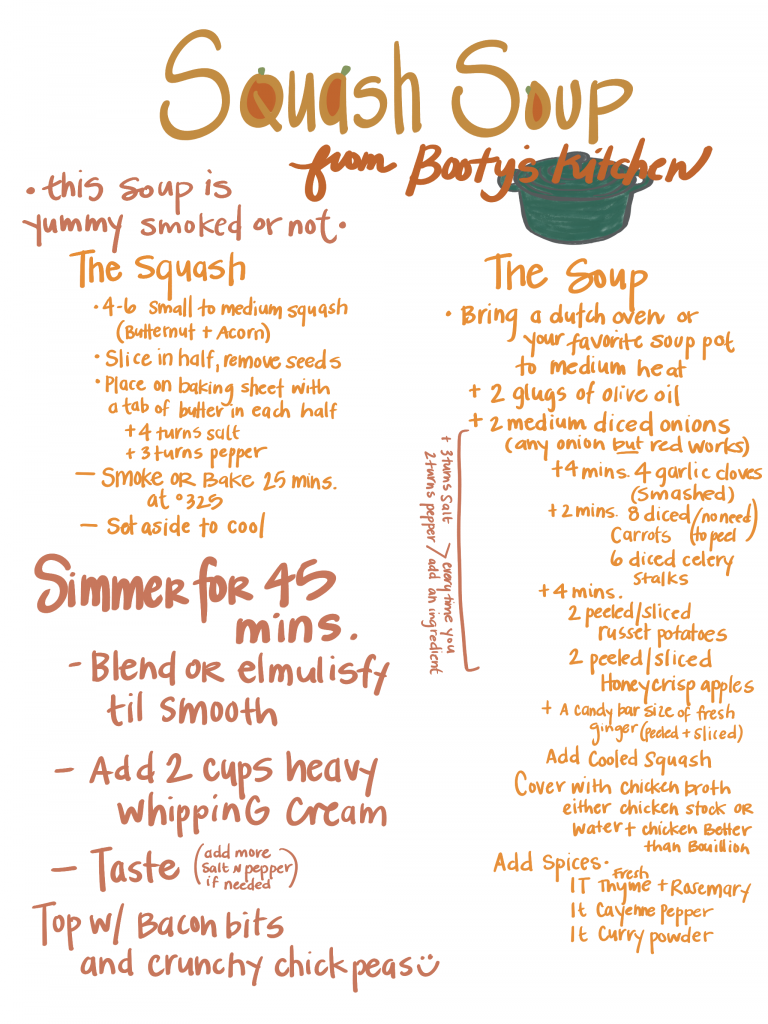 Squash Soup
from Booty's Kitchen
• this soup is
yummy smoked or not •
The Squash
• 4-6 Small to medium squash
(Butternut + Acorn)
• Slice in half, remove seeds
• Place on baking sheet with
a tab of butter in each half
+ 4 turns salt
+ 3 turns pepper
— Smoke OR Bake 25 mins.
at °325
— Set aside to cool
The Soup
• Bring a dutch oven or
your favorite soup pot
to medium heat
+ 2 glugs of olive oil
+ 2 medium diced onions
(any onion but red works)
+4 mins. 4 garlic cloves
(smashed)
+2 mins. 8 diced (no need
Carrots to peel)
6 diced celery
stalks
+4 mins.
2 peeled/sliced
russet potatoes
2 peeled/sliced
Honeycrisp apples
+ A candy bar size of fresh
ginger (peeled + sliced)
+ 3 turns salt
2 turns pepper / every time you
add an ingredient
Add Cooled Squash
Cover with chicken broth
either chicken stock OR
water + chicken Better
than Bouillion
Add Spices •
1T Fresh Thyme + Rosemary
1t Cayenne Pepper
1t Curry powder
Simmer for 45
mins.
- Blend OR elmulisfy
til smooth
— Add 2 cups heavy
whipping cream
— Taste (add more
Salt N pepper
if needed)
Top w/ Bacon bits
and crunchy chickpeas